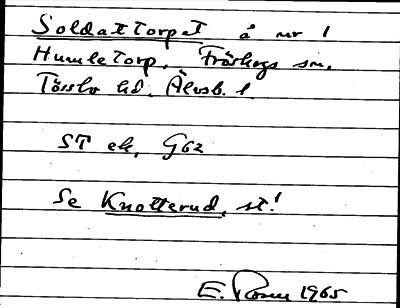 Soldattorpet å nr 1
Humletorp, Fröskogs sn.
Tössbo hd. Älvsb. l.
ST ek, G62
Se Knotterud, st!
E. Rosén 1965